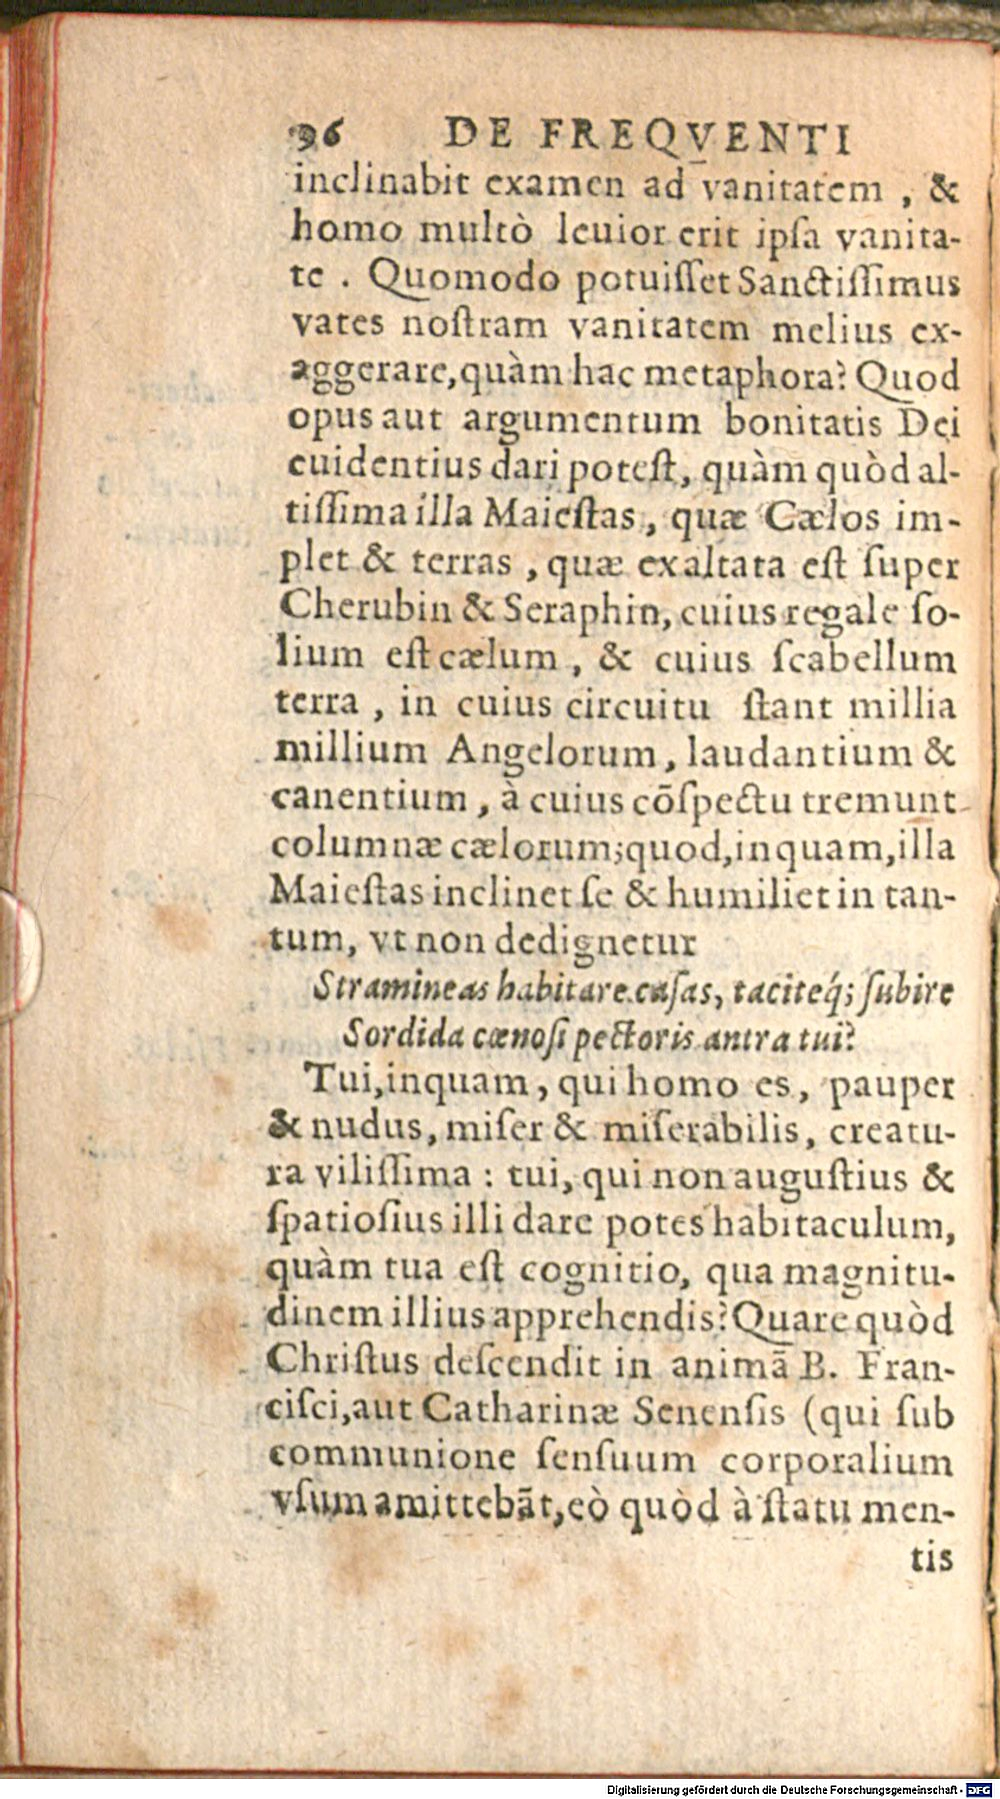 96 DE FREQVENTI
inclinabit examen ad vanitatem , &
homo multò leuior erit ipſa vanita-
te . Quomodo potuiſſet Sanctiſſimus
vates noſtram vanitatem melius ex-
aggerare, quàm hac metaphora? Quod
opus aut argumentum bonitatis Dei
euidentius dari poteſt, quàm quòd al-
tiſſima illa Maieſtas, quæ Cælos im-
plet & terras , quæ exaltata eſt ſuper
Cherubin & Seraphin, cuius regale ſo-
lium eſt cælum , & cuius ſcabellum
terra , in cuius circuitu ſtant millia
millium Angelorum, laudantium &
canentium , à cuius cōſpectu tremunt
columnæ cælorum; quod, inquam, illa
Maieſtas inclinet ſe & humiliet in tan-
tum, vt non dedignetur
Stramineas habitare caſas, taciteq́; ſubire
Sordida cœnoſi pectoris antra tui?
Tui, inquam, qui homo es, pauper
& nudus, miſer & miſerabilis, creatu-
ra viliſſima : tui, qui non auguſtius &
ſpatioſius illi dare potes habitaculum,
quàm tua eſt cognitio, qua magnitu-
dinem illius apprehendis? Quare quòd
Chriſtus deſcendit in animā B. Fran-
ciſci, aut Catharinæ Senenſis (qui ſub
communione ſenſuum corporalium
vſum amittebāt, eò quòd à ſtatu men-
tis
Digitalisierung gefördert durch die Deutsche Forschungsgemeinschaft - DFG